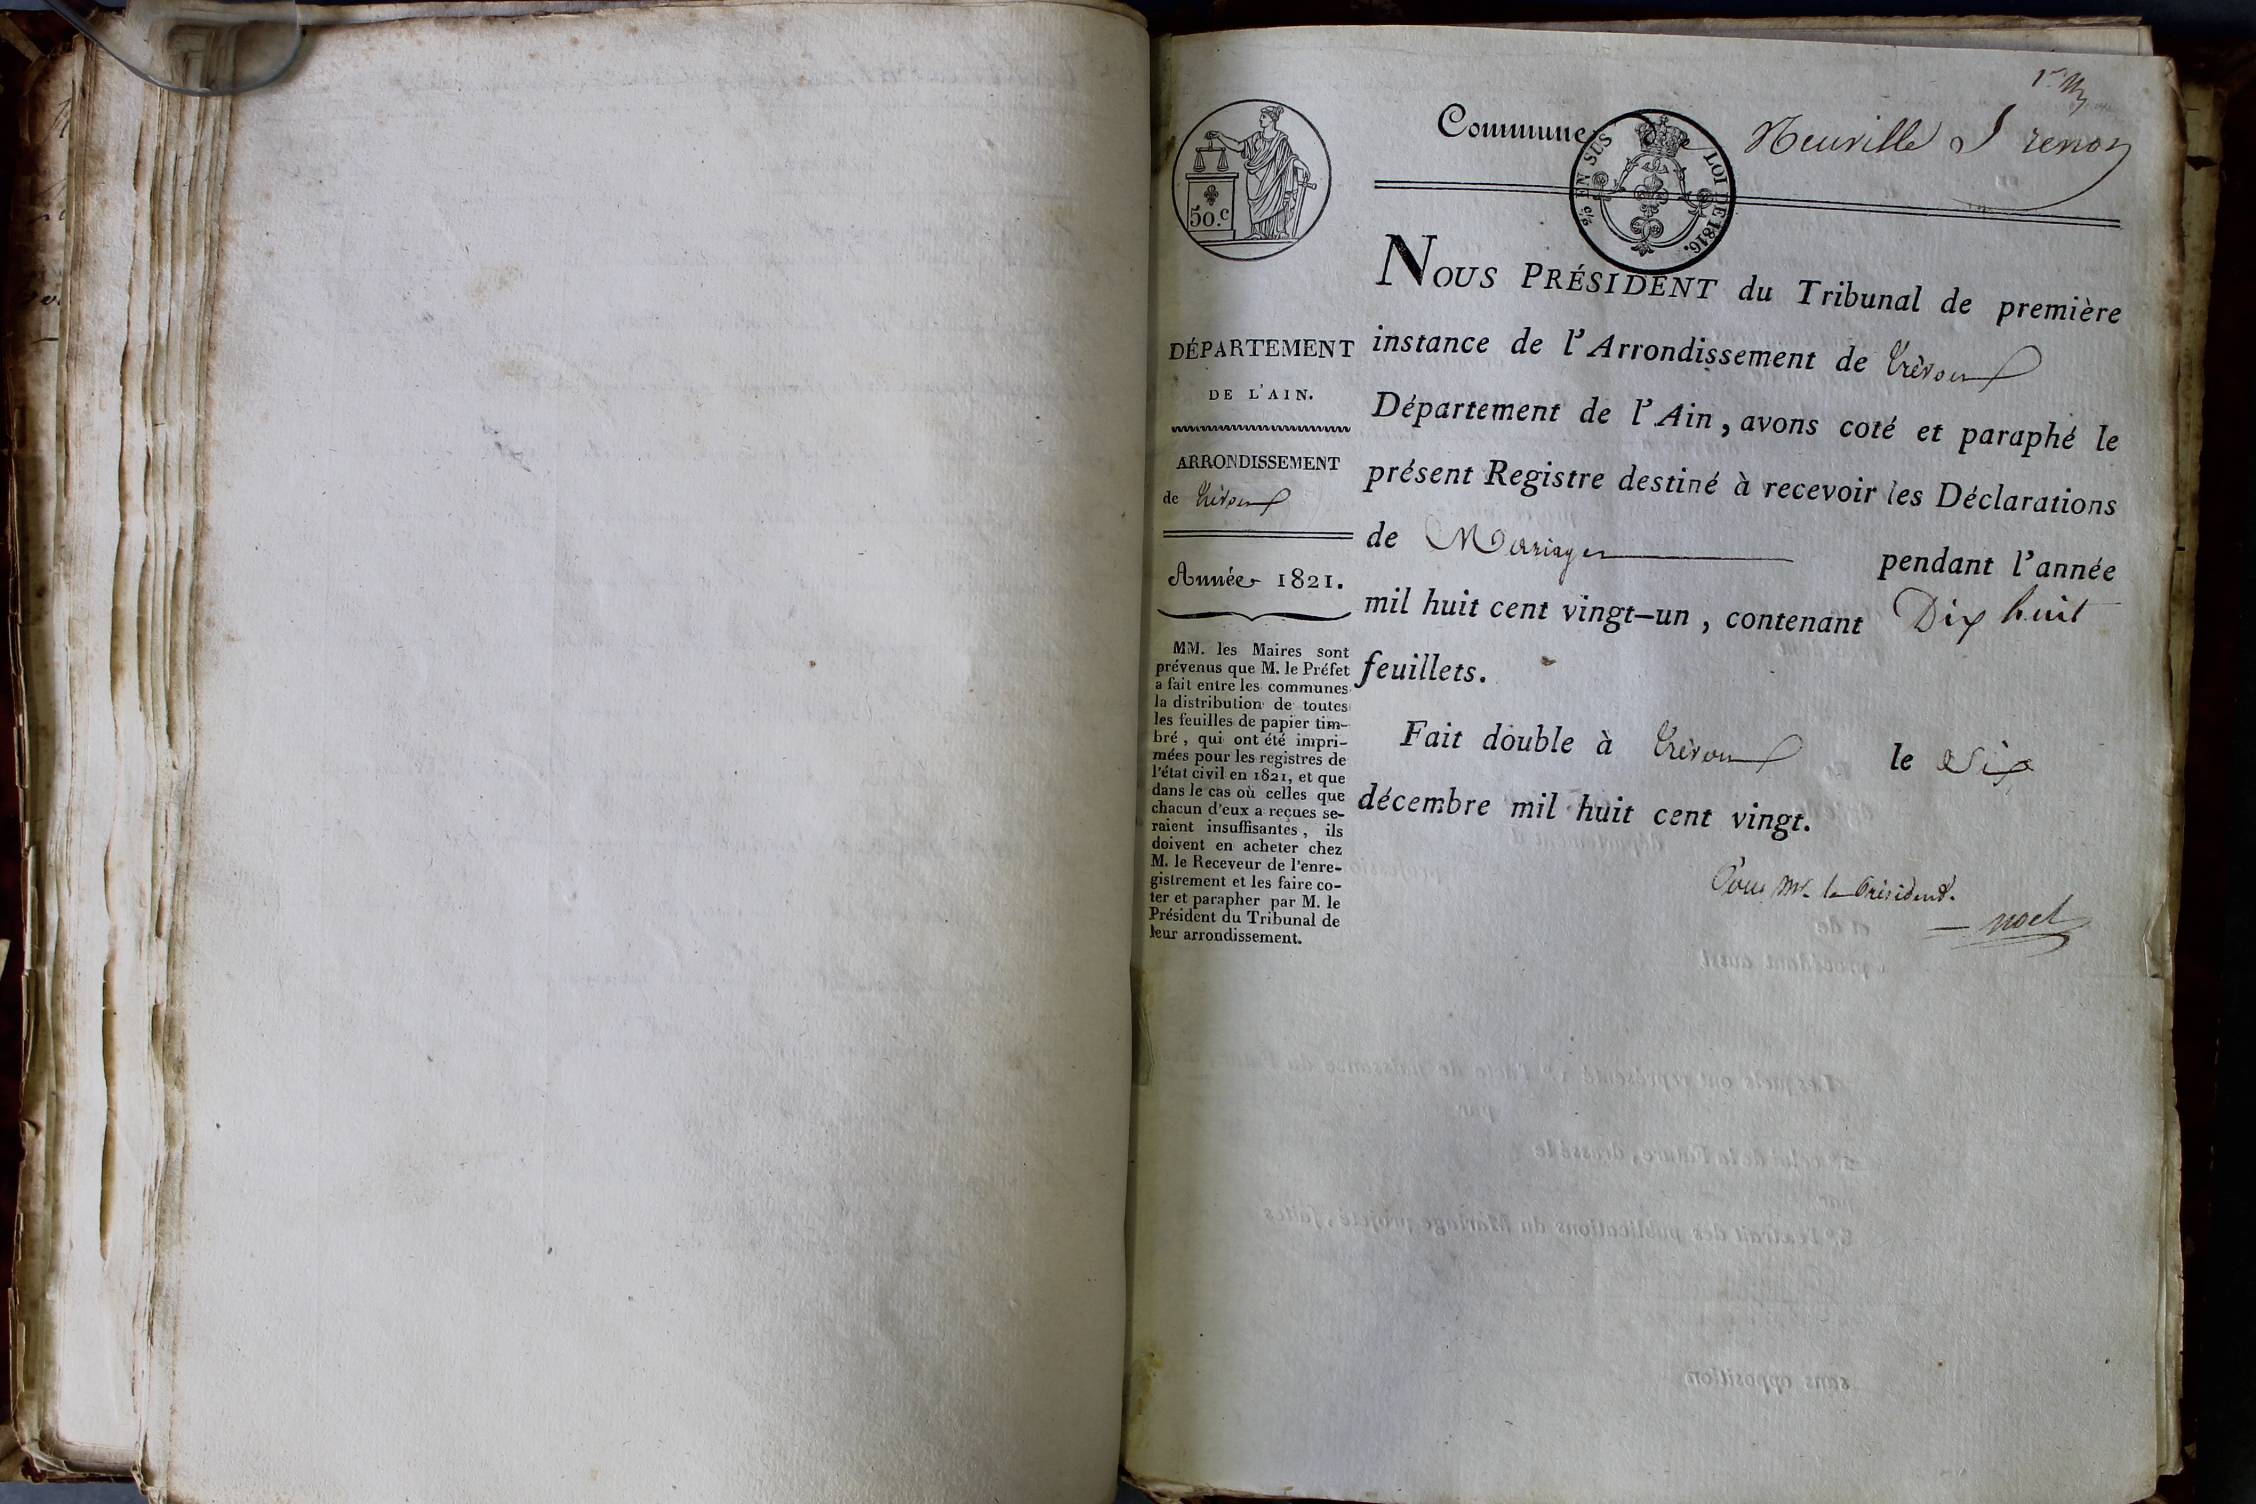 1er
Commune de Neuville S Renon
50.c
EN SUS LOI DE 1816.
NOUS PRÉSIDENT du Tribunal de première
instance de l'Arrondissement de Trévoux
Département de l'Ain, avons coté et paraphé le
présent Registre destiné à recevoir les Déclarations
de Marriages pendant l'année
mil huit cent vingt-un, contenant Dix huit
feuillets.
Fait double à Trévoux le Six
décembre mil huit cent vingt.
Pour Mr le Président.
Noel
DÉPARTEMENT
DE L'AIN.
ARRONDISSEMENT
de Trévoux
Année 1821.
MM. les Maires sont
prévenus que M. le Préfet
a fait entre les communes
la distribution de toutes
les feuilles de papier tim-
bré, qui ont été impri-
mées pour les registres de
l'état civil en 1821, et que
dans le cas où celles que
chacun d'eux a reçues se-
raient insuffisantes, ils
doivent en acheter chez
M. le Receveur de l'enre-
gistrement et les faire co-
ter et parapher par M. le
Président du Tribunal de
leur arrondissement.